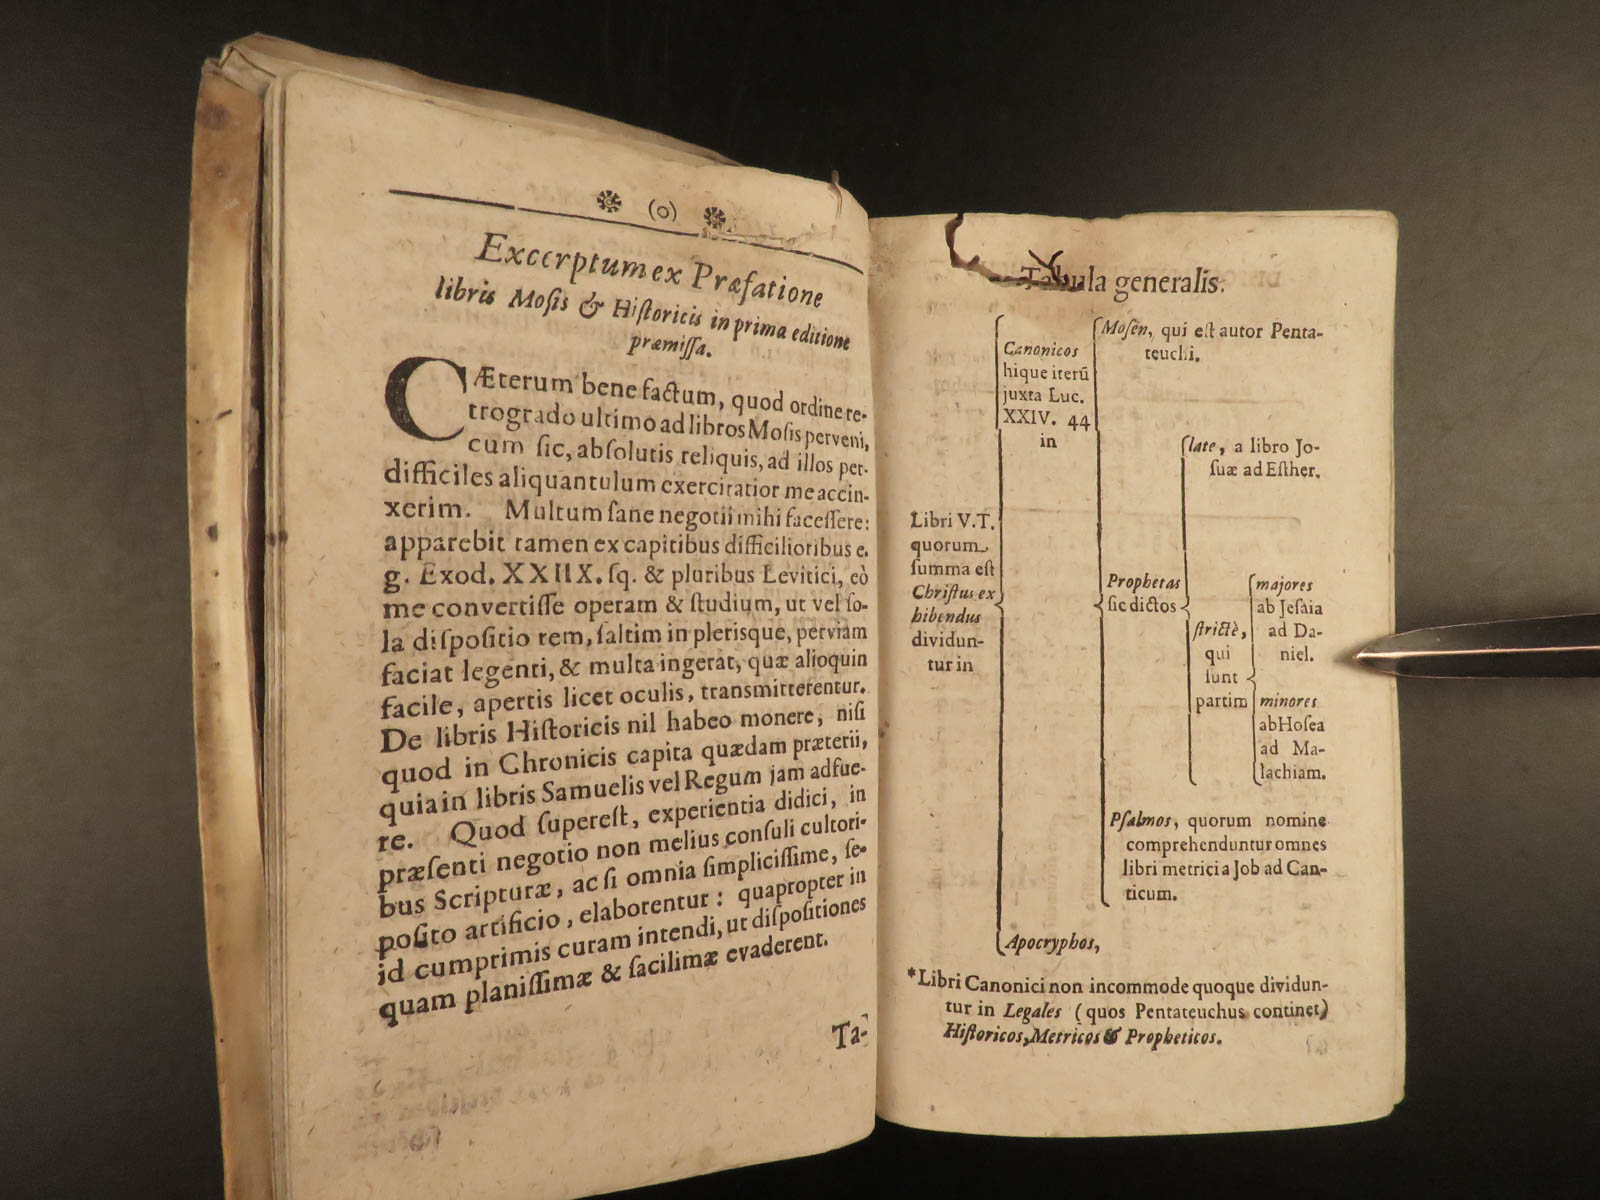 (o)
Excerptum ex Præfatione
libris Moſis & Hiſtoricis in prima editione
præmiſſa.
CÆterum bene factum, quod ordine re-
trogrado ultimo ad libros Moſis perveni,
cum ſic, abſolutis reliquis, ad illos per-
difficiles aliquantulum exercitatior me accin-
xerim. Multum ſane negotii mihi faceſſere:
apparebit tamen ex capitibus difficilioribus e.
g. Exod. XXIIX. ſq. & pluribus Levitici, eò
me convertiſſe operam & ſtudium, ut vel ſo-
la diſpoſitio rem, ſaltim in pleriſque, perviam
faciat legenti, & multa ingerat, quæ alioquin
facile, apertis licet oculis, transmitterentur.
De libris Hiſtoricis nil habeo monere, niſi
quod in Chronicis capita quædam præterii,
quia in libris Samuelis vel Regum jam adfue-
re. Quod ſupereſt, experientia didici, in
præſenti negotio non melius conſuli cultori-
bus Scripturæ, ac ſi omnia ſimpliciſſime, ſe-
poſito artificio, elaborentur: quapropter in
id cumprimis curam intendi, ut diſpoſitiones
quam planiſſimæ & facilimæ evaderent.
Ta-
Tabula generalis.
Libri V.T.
quorum
ſumma eſt
Chriſtus ex
hibendus
dividun-
tur in
Canonicos
hique iterū
juxta Luc.
XXIV. 44
in
Moſen, qui eſt autor Penta-
teuchi.
Prophetas
ſic dictos
late, a libro Jo-
ſuæ ad Eſther.
ſtrictè,
qui
ſunt
partim
majores
ab Jeſaia
ad Da-
niel.
minores
ab Hoſea
ad Ma-
lachiam.
Pſalmos, quorum nomine
comprehenduntur omnes
libri metrici a Job ad Can-
ticum.
Apocryphos,
*Libri Canonici non incommode quoque dividun-
tur in Legales (quos Pentateuchus continet)
Hiſtoricos, Metricos & Propheticos.